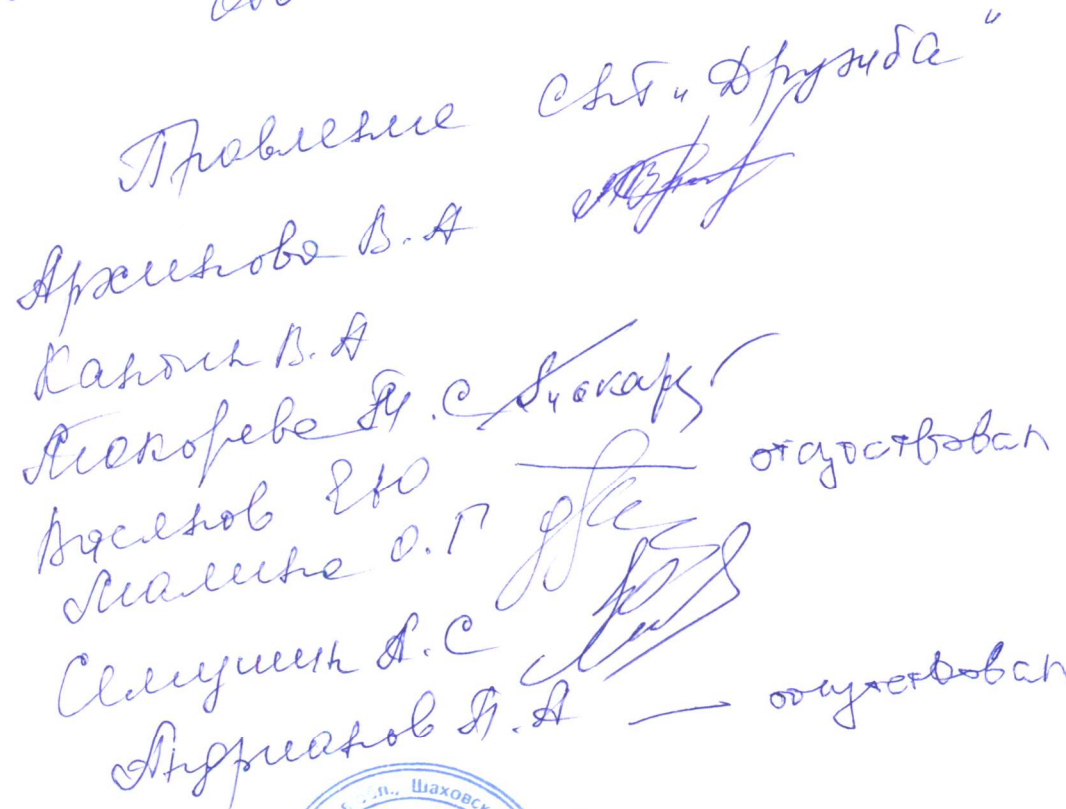 Правление СНТ „Дружба"
Архипова В.А
Канон В.А
Макарева Т.С
Васянов Е.Ю — отсутствовал
Малина О.Г
Семушин А.С
Андрианов П.А — отсутствовал
Шаховск